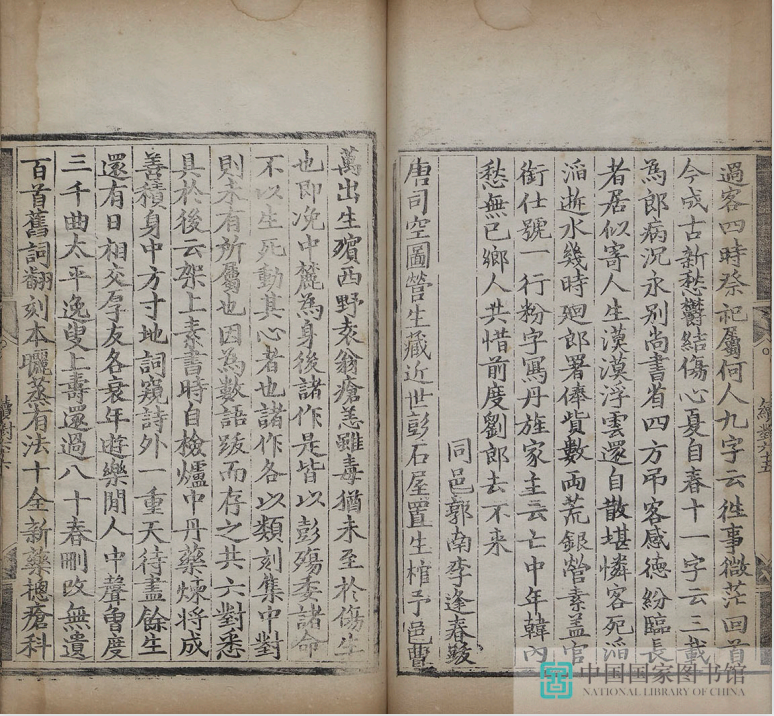 過客四時祭祀屬何人九字云徃事微茫回首
今成古新愁鬱結傷心夏自春十一字云三載
為郎病沉永别尚書省四方吊客感徳紛臨長
者居似寄人生漠漠浮雲還自散堪憐客死滔
滔逝水幾時廻郎署俸貲數兩荒銀營素盖官
銜仕號一行粉字寫丹旌家主云亡中年韓內
愁無已鄉人共惜前度劉郎去不来
同邑郭南李逢春跋
唐司空圖營生藏近世彭石屋置生棺予邑曹
萬出生殯西野袁翁瘡恙雖毒猶未至於傷生
也即浼中麓為身後諸作是皆以彭殤委諸命
不以生死動其心者也諸作各以類刻集中對
則未有所屬也因為數語跋而存之共六對悉
具於後云架上素書時自檢爐中丹藥煉将成
善積身中方寸地詞窺詩外一重天待盡餘生
還有日相交孚友各衰年遊樂閒人中聲會度
三千曲太平逸叟上壽還過八十春刪改無遺
百首舊詞翻刻本曬蒸有法十全新藥摠瘡科
續對六五
中国国家图书馆
NATIONAL LIBRARY OF CHINA